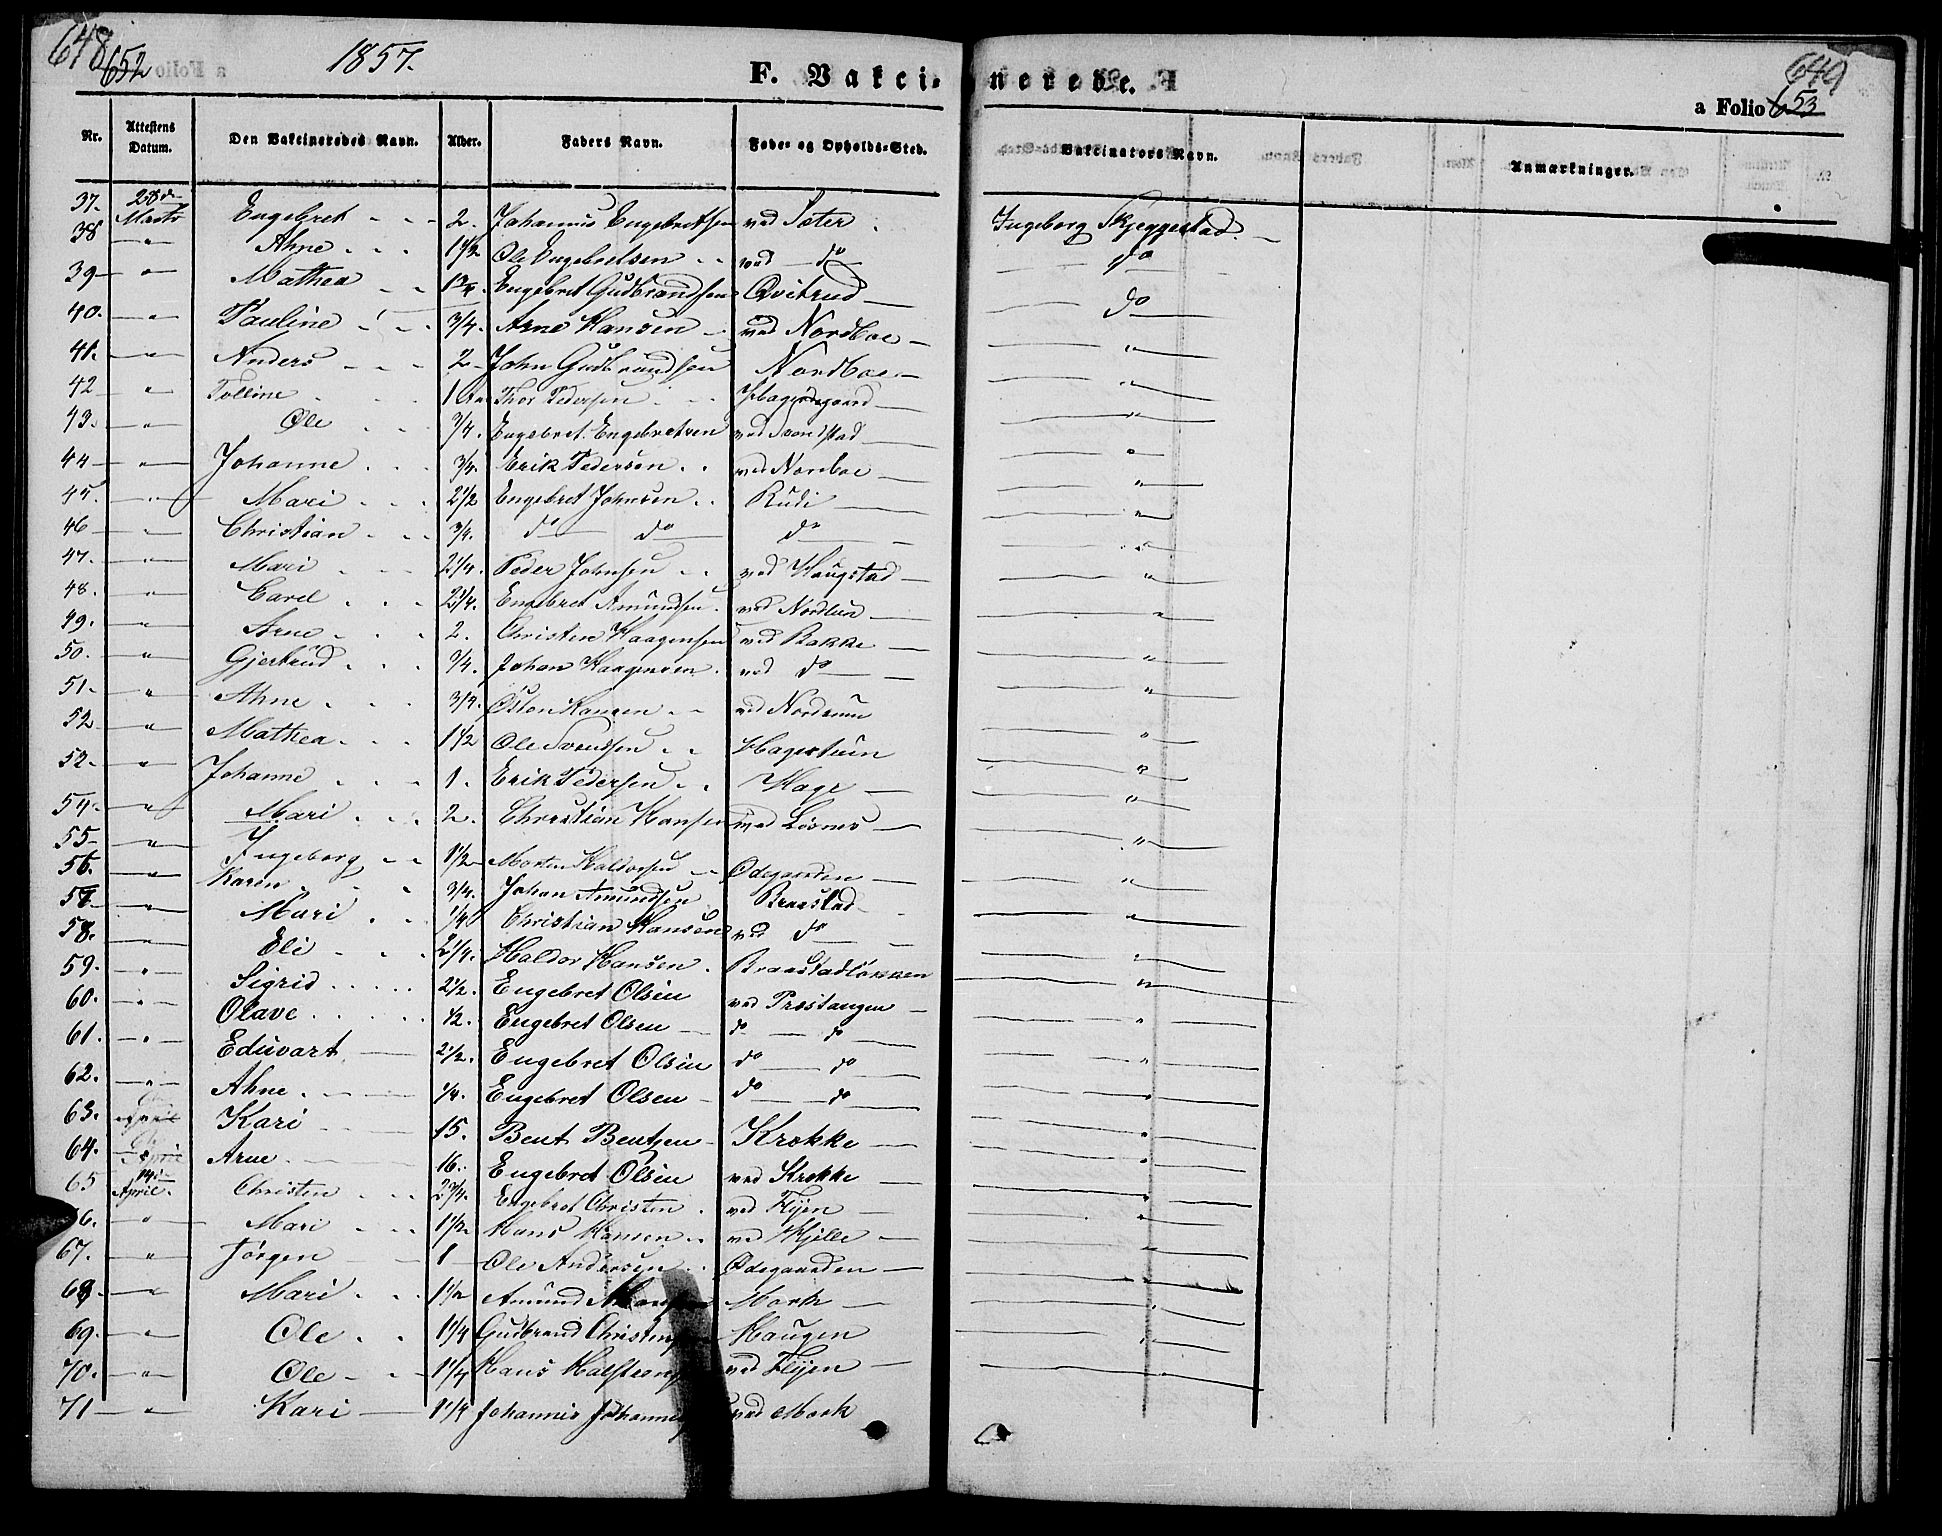 648 652 1857. F. Vakcinerede. 649
a Folio 653
Nr. Attestens Datum. Den Vaktineredes Navn. Alder. Faders Navn. Føde- og Opholds-Sted. Vakcinators Navn. Anmærkninger.
37. 28de Marts Engebret 2. Johannis Engebretsen ved Sæter Ingeborg Skjeggestad.
38 " Ahne 1 1/2 Ole Engebretsen ved do do
39 " Mathea Engebret Gudbrandsen Qvitrud do
40. " Pauline 3/4. Arne Hansen ved Nordboe "
41. " Anders 2 John Gudbrandsen Nordboe "
42 " Tolline 1 Thor Pedersen "
43. " Ole 3/4. Engebret Engebretsen ved "
44 " Johanne 3/4. Erik Pedersen ved Nordboe "
45. " Mari 2 1/2 Engebret Johnsen Rudi "
46 " Christian 3/4. do do do "
47. " Mari 2 1/4. Peder Johnsen ved Haugstad "
48. " Carel 2 1/4. Engebret Amundsen ved "
49. " Arne 2. Christen Haagensen ved Bakke "
50. " Gjertrud 3/4. Johan Haagensen ved do "
51. " Ahne 3/4. Østen Hansen ved Nordrum "
52 " Mathea 1 1/2 Ole Svendsen "
52. " Johanne 1. Erik Pedersen Hage "
54. " Mari 2. Christian Hansen ved Løsnes "
55 " Ingeborg 1 1/2 Morten Haldorsen Ødegaarden "
56. " Karen 3/4. Johan Amundsen Braastad "
57 " Mari 1/4 Christian Hansen ved do "
58. " Eli 2 1/4. Haldor Hansen Braastadløkken "
59. " Sigrid 2 1/2. Engebret Olsen ved Præstangen "
60. " Olave 1/2. Engebret Olsen do do "
61. " Eduvart 2 1/2. Engebret Olsen do do "
62. " Ahne 1/4. Engebret Olsen do do "
63. April Kari 15. Bent Bentsen Krokke "
64. Arne 16. Engebret Olsen ved Krokke "
65 14de April. Christen 2 3/4. Engebret Christen ved Flyen "
66. " Mari 1 1/2 Hans Hansen ved Kjelle "
67. " Jørgen 1 Ole Andersen Ødegaarden "
68 " Mari 1 1/2 Amund Mork "
69. " Ole 1 1/4 Gudbrand Haugen "
70. " Ole 1 1/4 Hans ved Flyen "
71 " Kari 1 1/4 Johannis ved Mork